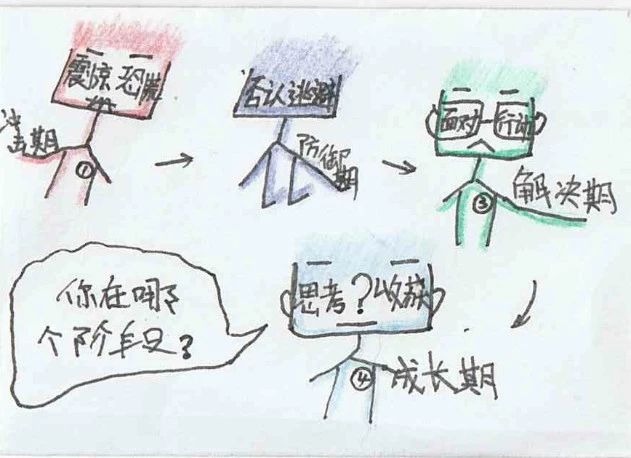 震惊恐慌
冲击期
①
否认逃避
防御期
面对 行动
③
解决期
思考？收获
④
成长期
你在哪
个阶段？